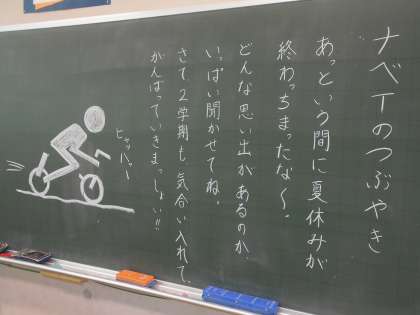 ナベTのつぶやき
あっという間に夏休みが
終わっちまったな〜。
どんな思い出があるのか、
いっぱい聞かせてね。
さて、2学期も、気合い入れて、
がんばっていきまっしょい!!
ヒャッハー